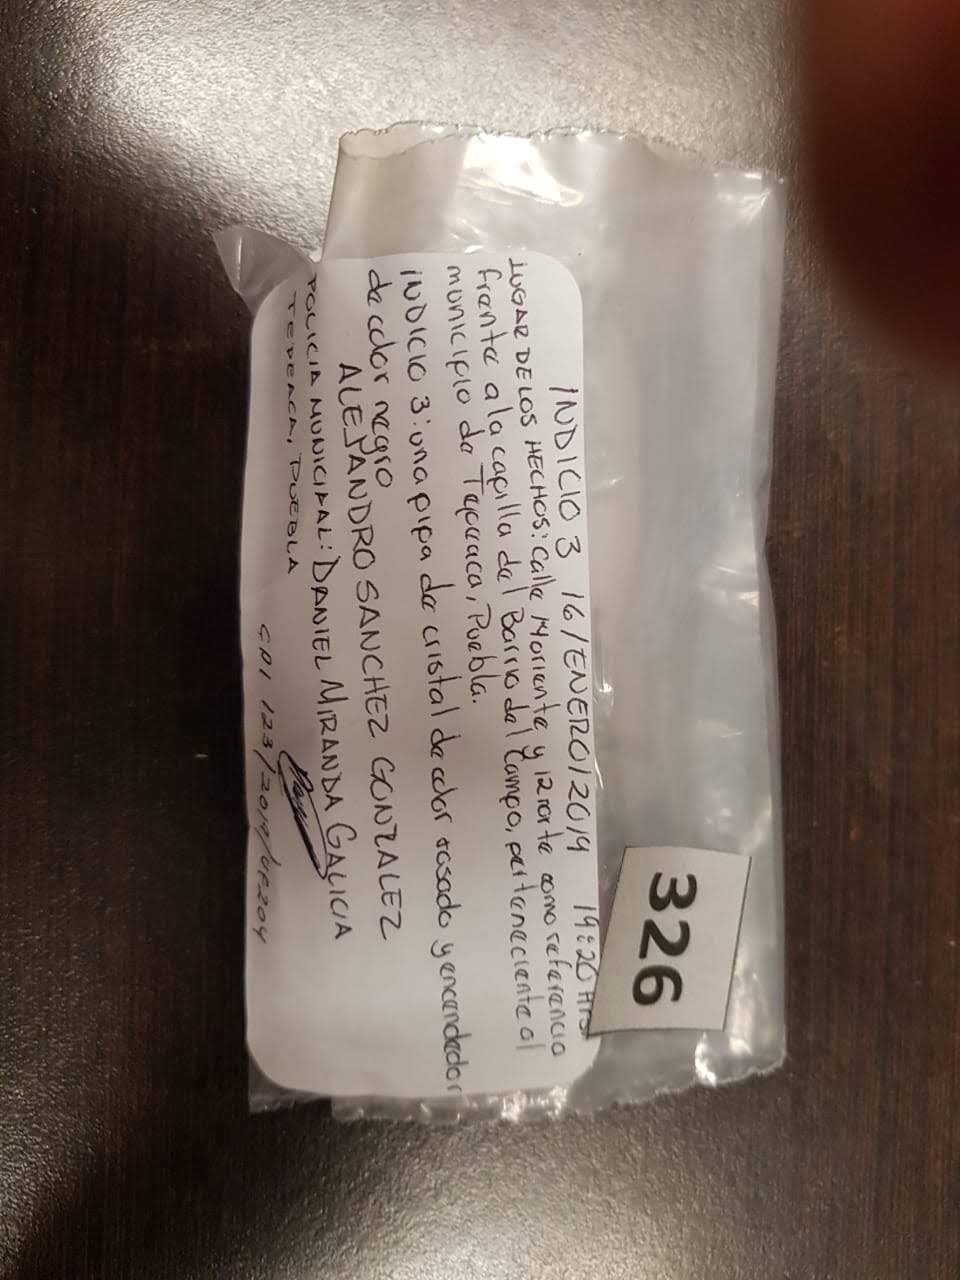 INDICIO 3 16/ENERO/2019 19:20 Hrs
LUGAR DE LOS HECHOS: Calle 14 oriente y 12 norte como referencia
frente a la capilla del Barrio del Campo, perteneciente al
municipio de Tepeaca, Puebla.
INDICIO 3: una pipa de cristal de color rosado y encendedor
de color negro
ALEJANDRO SANCHEZ GONZALEZ
POLICIA MUNICIPAL: DANIEL MIRANDA GALICIA
TEPEACA, PUEBLA
CDI 123/2019/
326